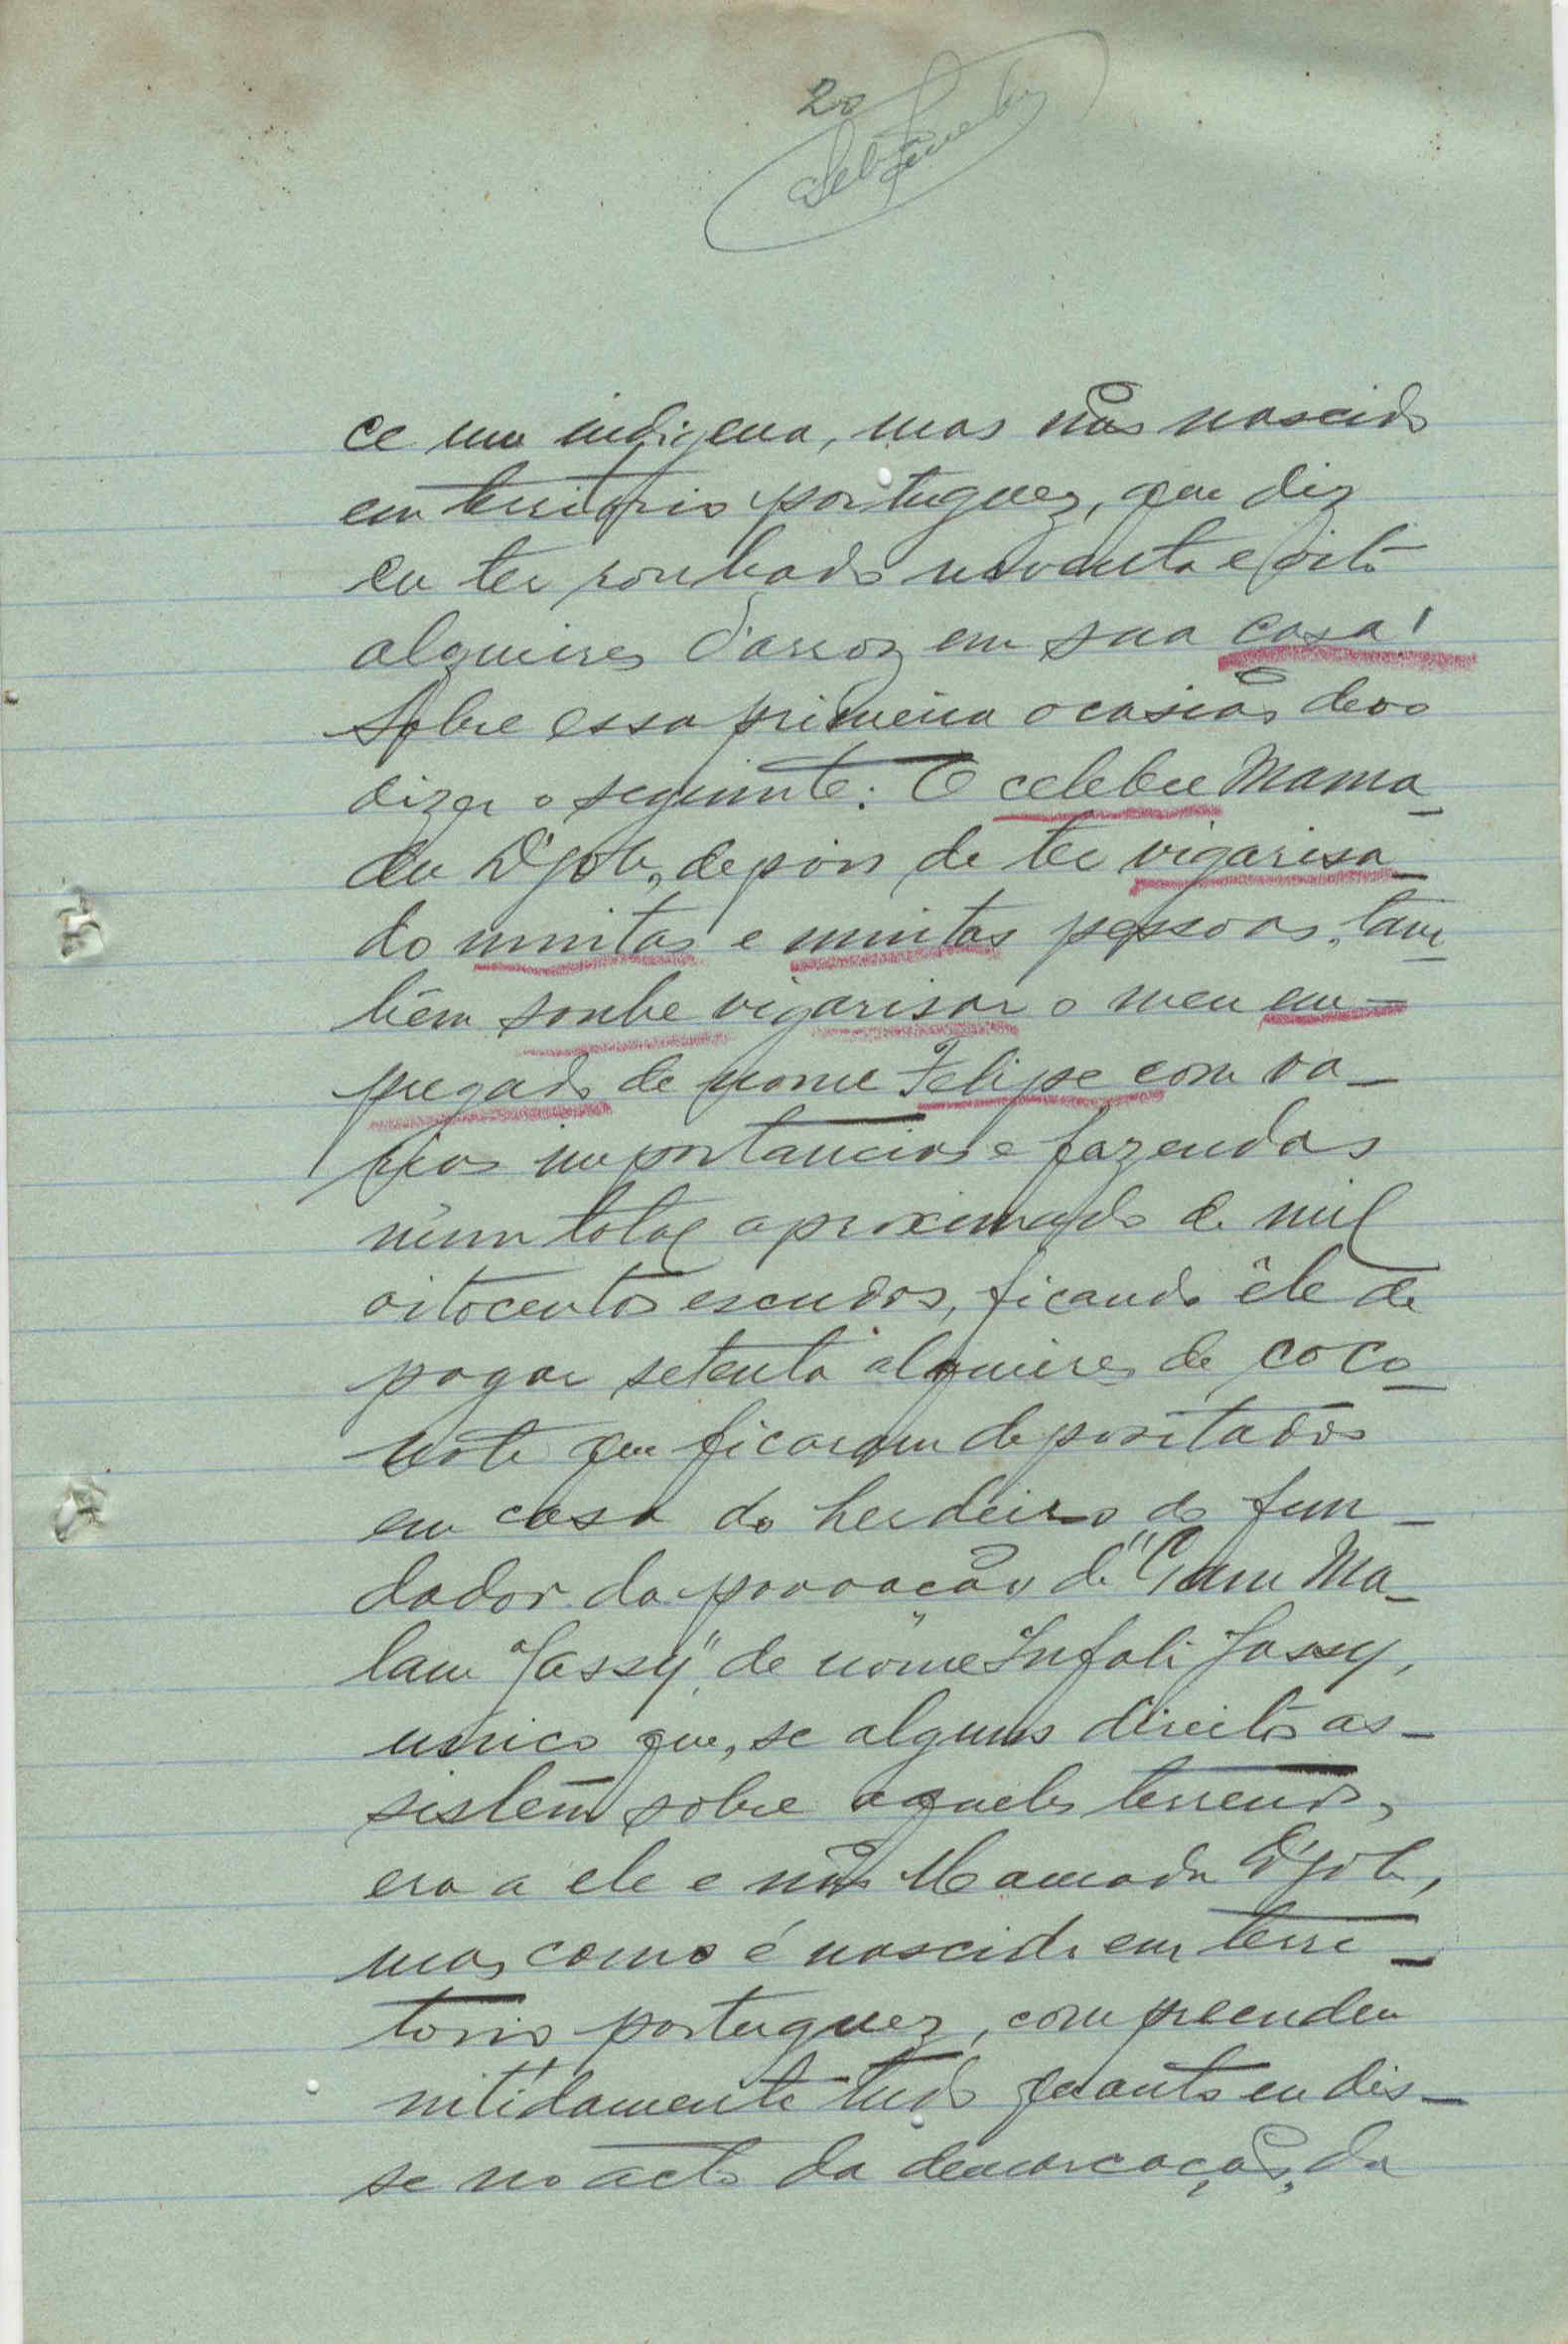 20
ce um indigena, mas não nascido
em territorio portuguez, que diz
eu ter roubado noventa e oito
alqueires d'arroz em sua casa!
Sobre essa primeira ocasião devo
dizer o seguinte: O celebre Mama-
du D'joló, depois de ter vigarisa-
do muitas e muitas pessoas, tam-
bêm soube vigarisar o meu em-
pregado de nome Felipe com va-
rias importancias e fazendas
num total aproximado de mil
oitocentos escudos, ficando êle de
pagar setenta alqueires de coco-
note que ficaram depositados
em casa do herdeiro do fun-
dador da povoação de "Gam Ma-
lam Jassy", de nome Infali Jassy,
unico que, se alguns direitos as-
sistem sobre aqueles terrenos,
era a ele e não Mamadu D'joló,
mas como é nascido em terri-
torio portuguez, compreendeu
nitidamente tudo quanto eu dis-
se no acto da demarcação, da